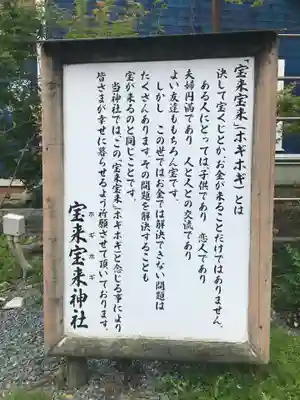 「宝来宝来」(ホギホギ)とは
決して宝くじとか、お金が来ることだけではありません。
ある人にとっては、子供であり 恋人であり
夫婦円満であり 人と人との交流であり
よい友達ももちろん宝です。
しかし この世ではお金では解決できない問題は
たくさんあります。その問題を解決することも
宝が来るのと同じことです。
当神社では、この、宝来宝来」(ホギホギ)と念じる事により
皆さまが幸せに暮らせるよう祈願させて頂いております。
宝来宝来神社
ホギホギ